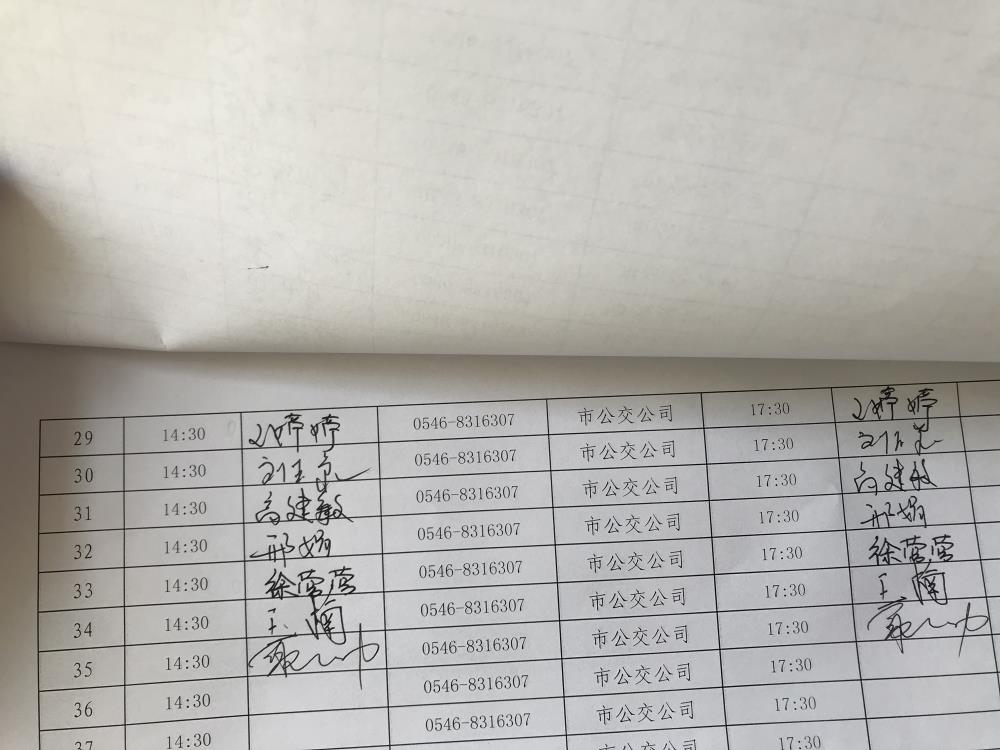 29 14:30 婷婷 0546-8316307 市公交公司 17:30 婷婷
30 14:30 0546-8316307 市公交公司 17:30
31 14:30 高建敏 0546-8316307 市公交公司 17:30 高建敏
32 14:30 邢娟 0546-8316307 市公交公司 17:30 邢娟
33 14:30 徐莹莹 0546-8316307 市公交公司 17:30 徐莹莹
34 14:30 王 0546-8316307 市公交公司 17:30 王
35 14:30 0546-8316307 市公交公司 17:30
36 14:30 0546-8316307 市公交公司 17:30
37 14:30 0546-8316307 市公交公司 17:30
市公交公司 17:30